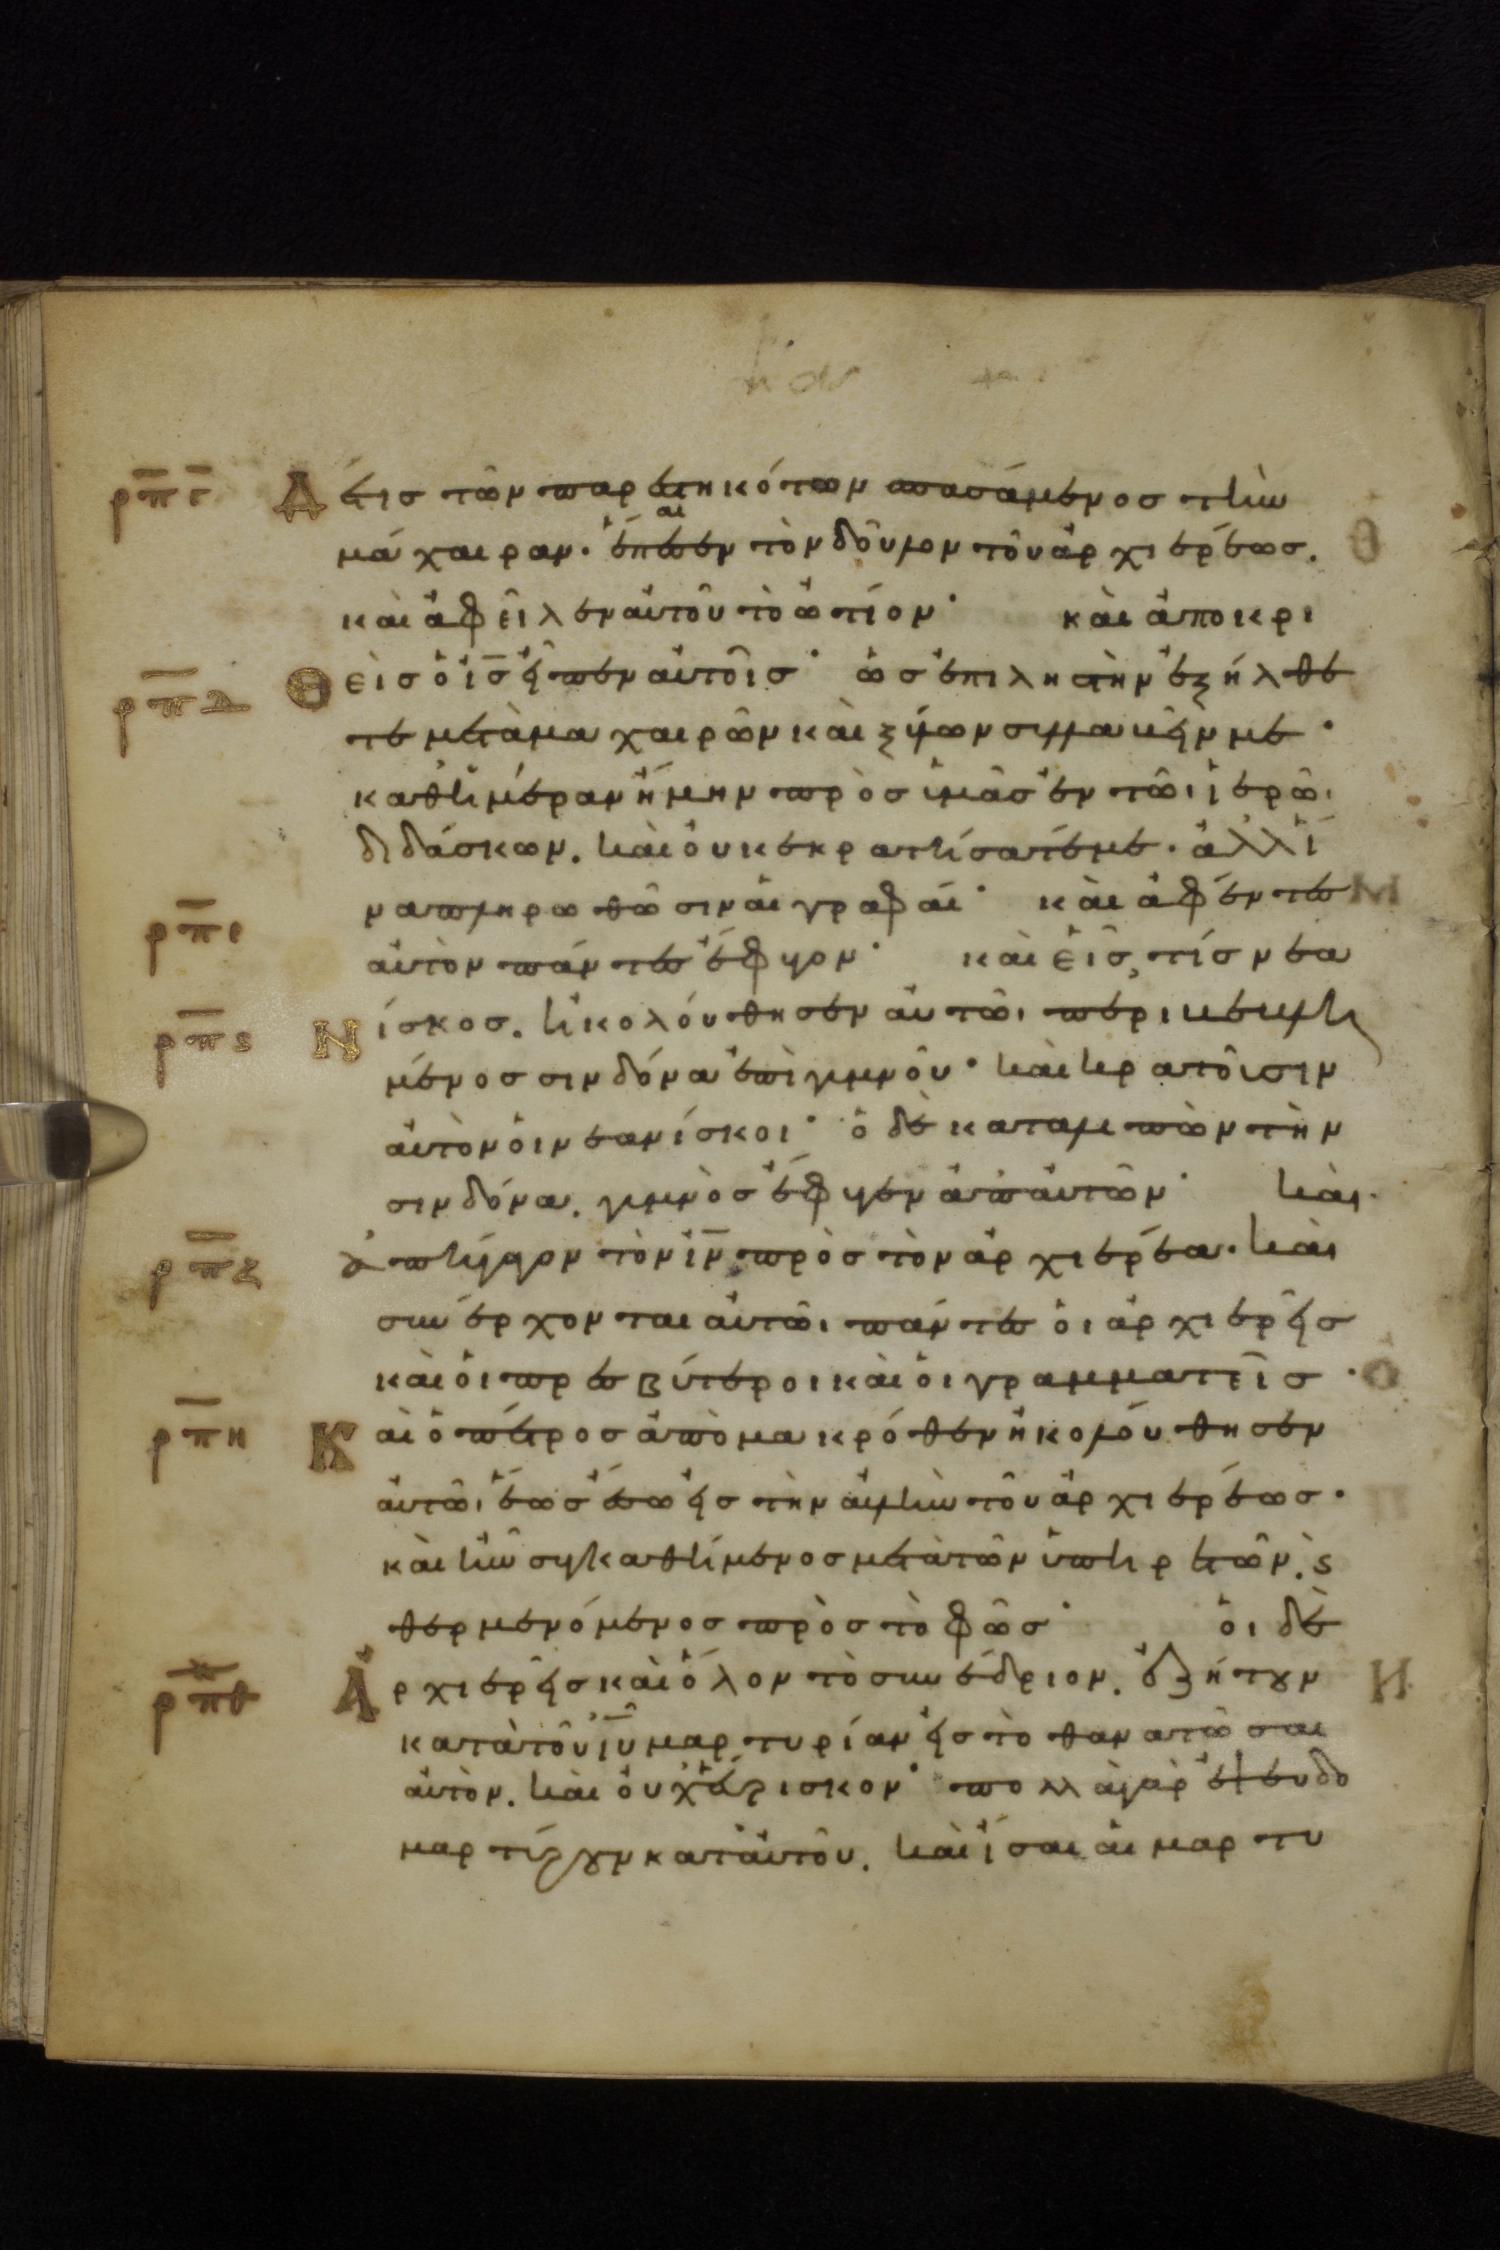 ρπγ Δέτισ τῶν παρεστηκότων σπασάμενοσ τὴν
μάχαιραν· ἔπαισεν τὸν δοῦλον τοῦ ἀρχιερέωσ.
καὶ ἀφεῖλεν αὐτοῦ τὸ ὠτίον· καὶ ἀποκρι
ρπδ Θεὶσ ὁ ἰ̅σ̅ εἶπεν αὐτοῖσ· ὡσ ἐπι ληστὴν ἐξήλθε
τε μετὰ μαχαιρῶν καὶ ξύλων συλλαβεῖν με·
καθημέραν ἤμην πρὸσ ὑμᾶσ ἐν τῶι ἱερῶι
διδάσκων. καὶ οὐκ εκρατήσατέ με· ἀλλ ἵ
να πληρωθῶσιν αἱ γραφαί· καὶ ἀφέντεσ
ρπε αὐτὸν πάντεσ ἔφυγον· καὶ εἷσ τίσ νεα
ρπς Νίσκοσ. ἠκολόυθησεν αὐτῶι περικεκλη
μένοσ σινδόνα ἐπὶ γυμνοῦ· καὶ κρατοῦσιν
αὐτὸν οἱ νεανίσκοι· ὁ δὲ καταλιπὼν τὴν
σινδόνα. γυμνὸσ ἔφυγεν ἀπ αὐτῶν· καὶ
ρπζ ἀπήγαγον τὸν ἰ̅ν̅ πρὸσ τὸν ἀρχιερέα· καὶ
συνέρχονται αὐτῶι πάντεσ ὁι ἀρχιερεῖσ
καὶ ὁι πρεσβύτεροι καὶ ὁι γραμματεῖσ·
ρπη Καὶ ὁ πέτροσ ἀπὸ μακρόθεν ἠκολόυθησεν
αὐτῶι ἕωσ ἔσω εἰσ τὴν αὐλὴν τοῦ ἀρχιερέωσ·
καὶ ἦν συγκαθήμενοσ μετὰ τῶν ὑπηρετῶν. ϗ
θερμενόμενοσ πρὸσ τὸ φῶσ· ὁι δὲ
ρπθ Ἀρχιερεῖσ καὶ ὅλον τὸ συνέδριον. ἐζήτουν
κατὰ τοῦ ἰ̅υ̅ μαρτυρίαν εἰσ τὸ θανατῶσαι
αὐτὸν. καὶ οὐχ ἕυρισκον· πολλὰ γὰρ ἐψευδο
μαρτύρουν κατ αὐτοῦ. καὶ ἴσαι αἱ μαρτυ